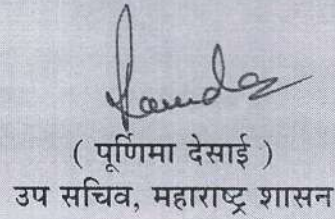 ( पूर्णिमा देसाई )
उप सचिव, महाराष्ट्र शासन